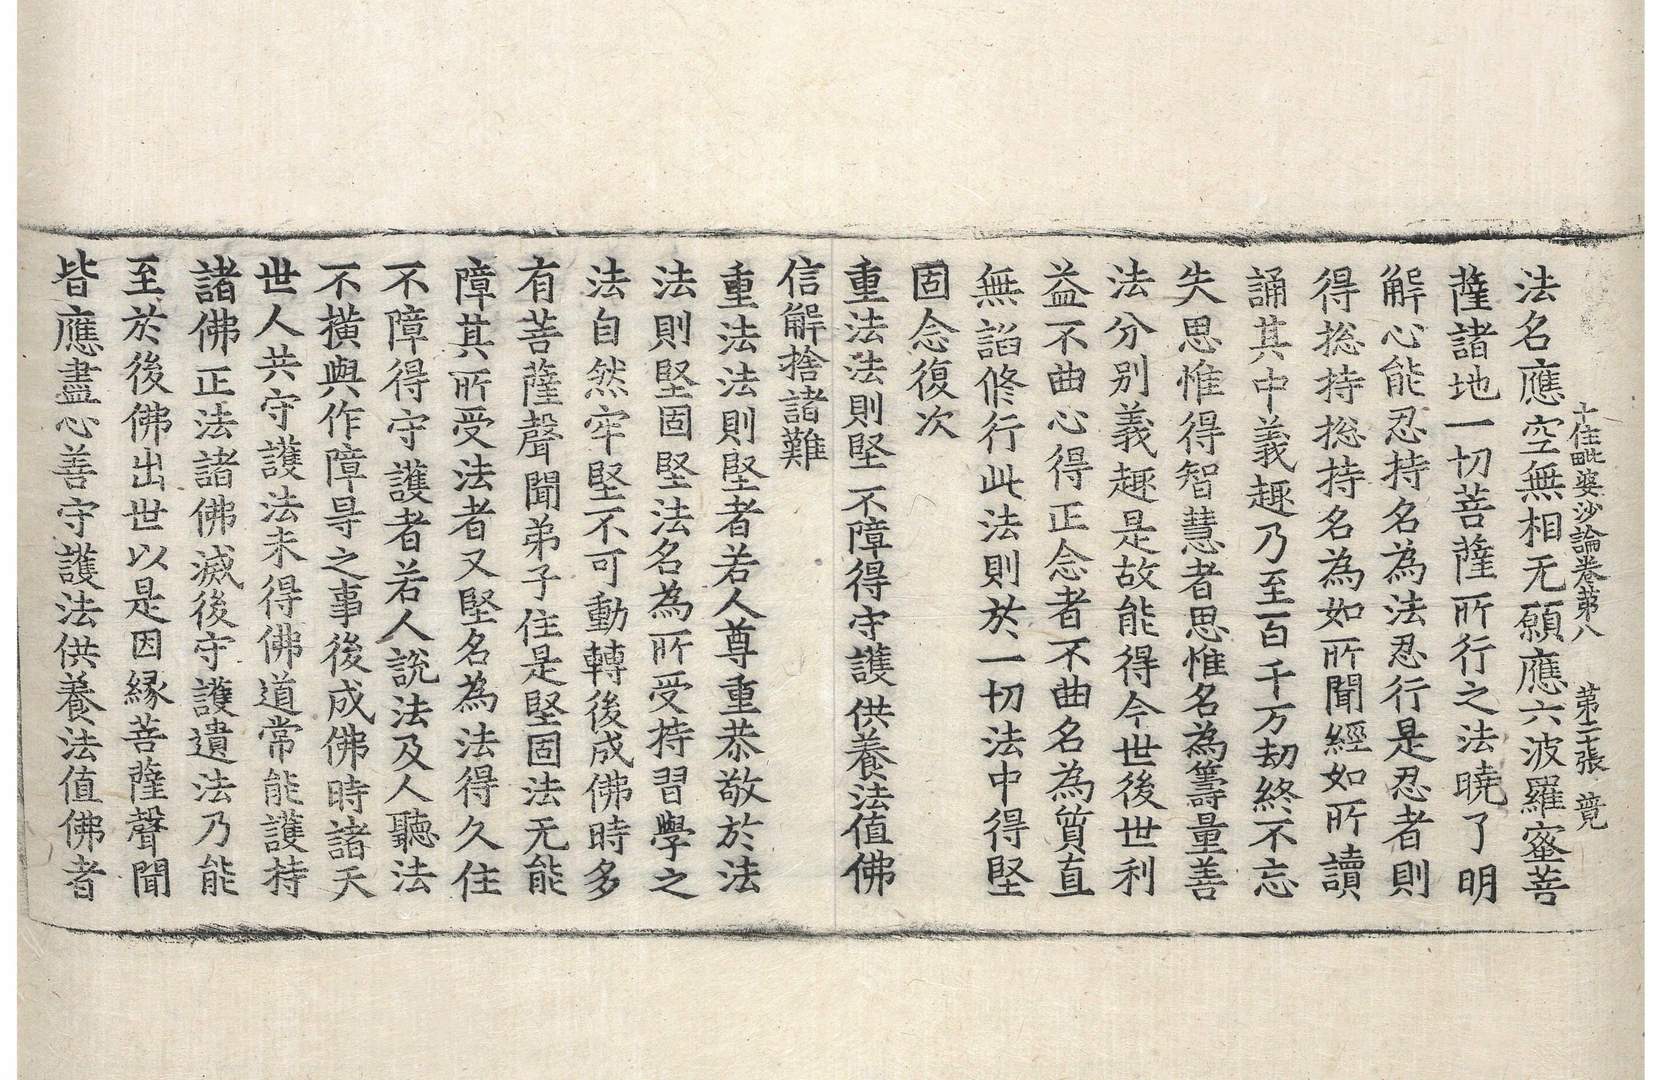 十住毗婆沙論卷第八　第二十張　竟
法名應空無相无願應六波羅蜜菩
薩諸地一切菩薩所行之法曉了明
解心能忍持名為法忍行是忍者則
得揔持揔持名為如所聞經如所讀
誦其中義趣乃至百千万劫終不忘
失思惟得智慧者思惟名為籌量善
法分別義趣是故能得今世後世利
益不曲心得正念者不曲名為質直
無諂修行此法則於一切法中得堅
固念復次
重法法則堅　不障得守護　供養法值佛
信解捨諸難
重法法則堅者若人尊重恭敬於法
法則堅固堅法名為所受持習學之
法自然牢堅不可動轉後成佛時多
有菩薩聲聞弟子住是堅固法无能
障其所受法者又堅名為法得久住
不障得守護者若人說法及人聽法
不橫與作障㝵之事後成佛時諸天
世人共守護法未得佛道常能護持
諸佛正法諸佛滅後守護遺法乃能
至於後佛出世以是因緣菩薩聲聞
皆應盡心善守護法供養法值佛者